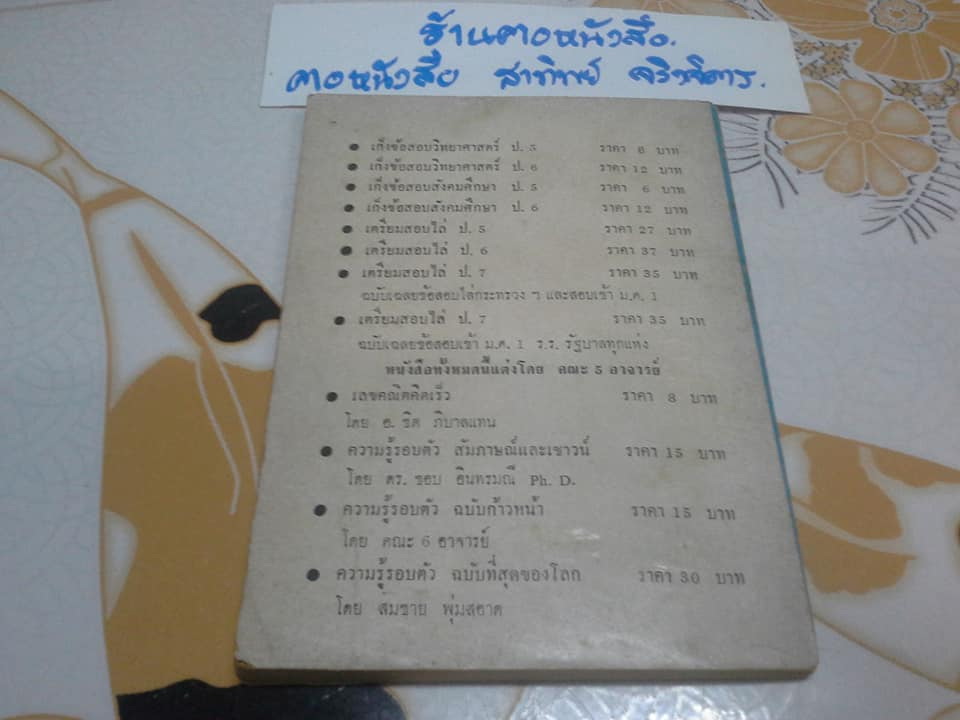 ร้านคอหนังสือ.
คอหนังสือ สาทิทย์ จริงจิตร.
● เก็งข้อสอบวิทยาศาสตร์ ป. 5 ราคา 6 บาท
● เก็งข้อสอบวิทยาศาสตร์ ป. 6 ราคา 12 บาท
● เก็งข้อสอบสังคมศึกษา ป. 5 ราคา 6 บาท
● เก็งข้อสอบสังคมศึกษา ป. 6 ราคา 12 บาท
● เตรียมสอบไล่ ป. 5 ราคา 27 บาท
● เตรียมสอบไล่ ป. 6 ราคา 37 บาท
● เตรียมสอบไล่ ป. 7 ราคา 35 บาท
ฉบับเฉลยข้อสอบไล่กระทรวง ฯ และสอบเข้า ม.ศ. 1
● เตรียมสอบไล่ ป. 7 ราคา 35 บาท
ฉบับเฉลยข้อสอบเข้า ม.ศ. 1 ร.ร. รัฐบาลทุกแห่ง
หนังสือทั้งหมดนี้แต่งโดย คณะ 5 อาจารย์
● เลขคณิตคิดเร็ว ราคา 8 บาท
โดย อ. ชิต ภิบาลแทน
● ความรู้รอบตัว สัมภาษณ์และเชาวน์ ราคา 15 บาท
โดย ดร. ชอบ อินทรมณี Ph. D.
● ความรู้รอบตัว ฉบับก้าวหน้า ราคา 15 บาท
โดย คณะ 6 อาจารย์
● ความรู้รอบตัว ฉบับที่สุดของโลก ราคา 30 บาท
โดย สมชาย พุ่มสอาด